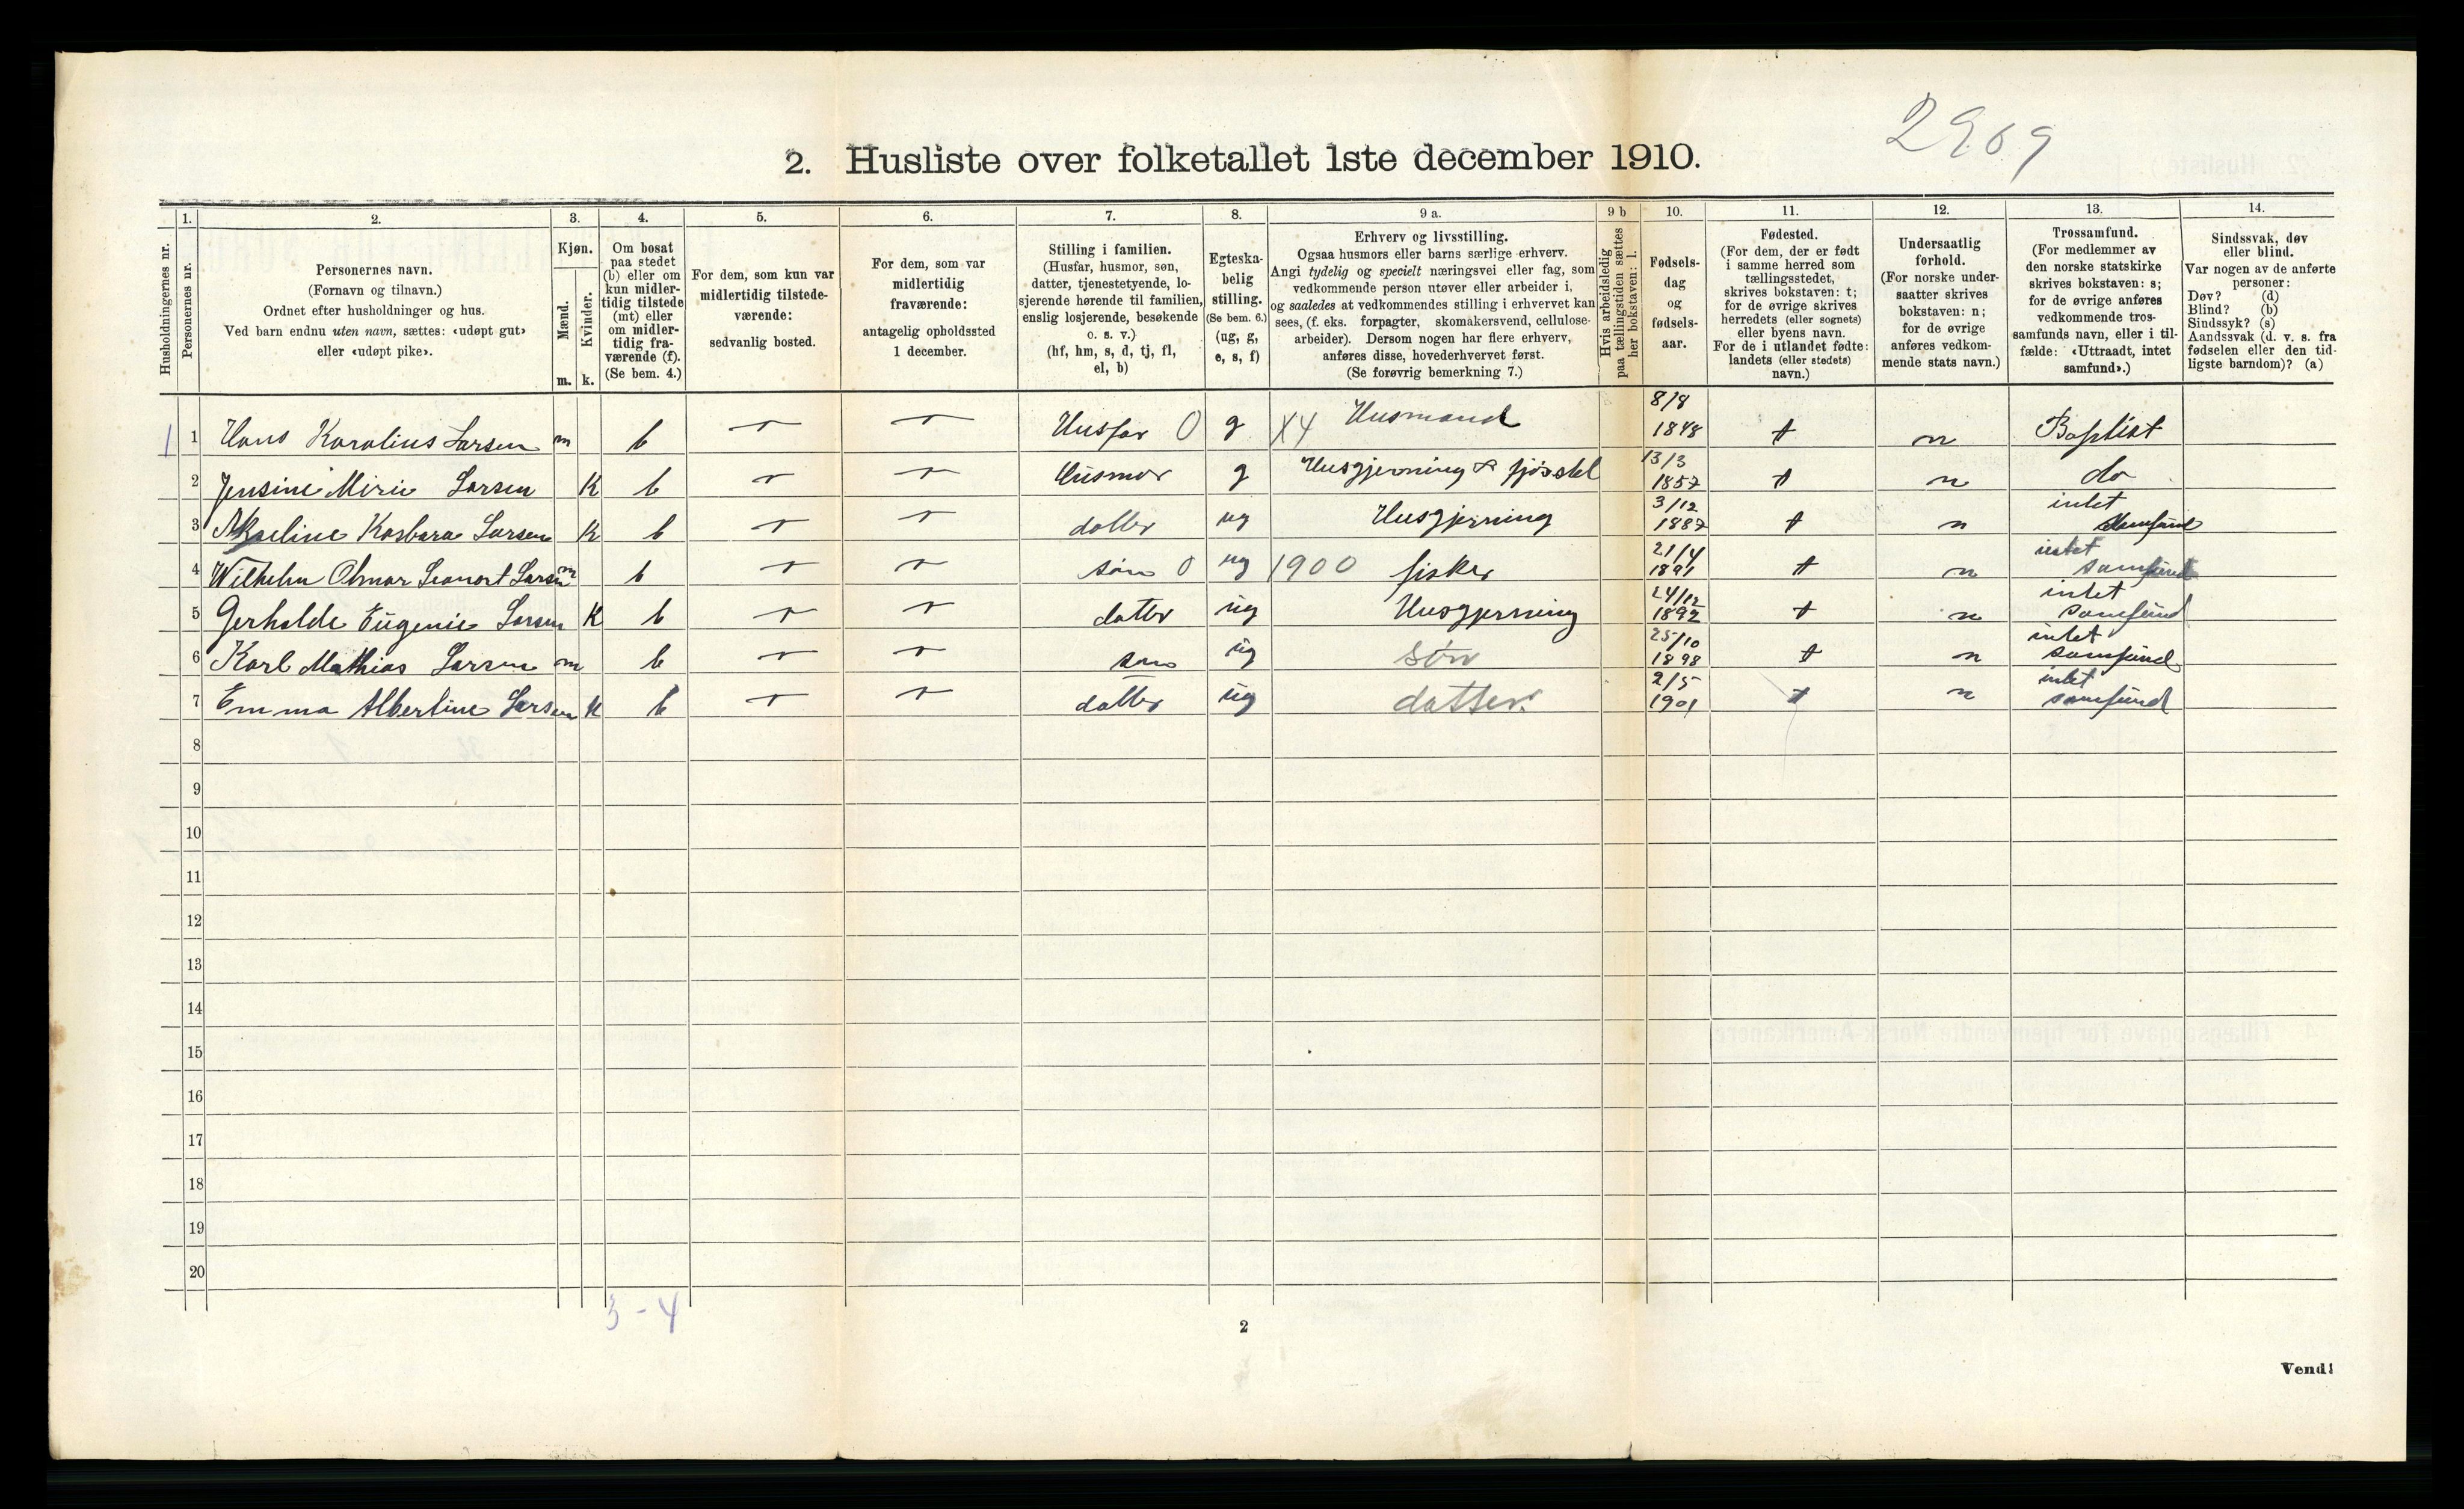 2969
2. Husliste over folketallet 1ste december 1910.
Husholdningernes nr.
1.
Personernes nr.
2.
Personernes navn.
(Fornavn og tilnavn.)
Ordnet efter husholdninger og hus.
Ved barn endnu uten navn, sættes: «udøpt gut»
eller «udøpt pike».
3.
Kjøn.
Mænd.
Kvinder.
m. k.
4.
Om bosat
paa stedet
(b) eller om
kun midler-
tidig tilstede
(mt) eller
om midler-
tidig fra-
værende (f).
(Se bem. 4.)
5.
For dem, som kun var
midlertidig tilstede-
værende:
sedvanlig bosted.
6.
For dem, som var
midlertidig
fraværende:
antagelig opholdssted
1 december.
7.
Stilling i familien.
(Husfar, husmor, søn,
datter, tjenestetyende, lo-
sjerende hørende til familien,
enslig losjerende, besøkende
o. s. v.)
(hf, hm, s, d, tj, fl,
el, b)
8.
Egteska-
belig
stilling.
(Se bem. 6.)
(ug, g,
e, s, f)
9 a.
Erhverv og livsstilling.
Ogsaa husmors eller barns særlige erhverv.
Angi tydelig og specielt næringsvei eller fag, som
vedkommende person utøver eller arbeider i,
og saaledes at vedkommendes stilling i erhvervet kan
sees, (f. eks. forpagter, skomakersvend, cellulose-
arbeider). Dersom nogen har flere erhverv,
anføres disse, hovederhvervet først.
(Se forøvrig bemerkning 7.)
9 b
Hvis arbeidsledig
paa tællingstiden sættes
her bokstaven: l.
10.
Fødsels-
dag
og
fødsels-
aar.
11.
Fødested.
(For dem, der er født
i samme herred som
tællingsstedet,
skrives bokstaven: t;
for de øvrige skrives
herredets (eller sognets)
eller byens navn.
For de i utlandet fødte:
landets (eller stedets)
navn.)
12.
Undersaatlig
forhold.
(For norske under-
saatter skrives
bokstaven: n;
for de øvrige
anføres vedkom-
mende stats navn.)
13.
Trossamfund.
(For medlemmer av
den norske statskirke
skrives bokstaven: s;
for de øvrige anføres
vedkommende tros-
samfunds navn, eller i til-
fælde: «Uttraadt, intet
samfund».)
14.
Sindssvak, døv
eller blind.
Var nogen av de anførte
personer:
Døv? (d)
Blind? (b)
Sindssyk? (s)
Aandssvak (d. v. s. fra
fødselen eller den tid-
ligste barndom)? (a)
1 1 Hans Karolius Larsen m b Husfar 0 g X4 Husmand 8/8 1848 t n Baptist
2 Jensine Mirie Larsen K b Husmor g Husgjerning & fjøsstel 13/3 1857 t n do
3 Kasbara Larsen K b datter ug Husgjerning 3/12 1887 t n intet samfund
4 Wilhelm Larsen m b søn 0 ug 1900 fisker 21/4 1891 t n intet samfund
5 Gerhalde Eugenie Larsen K b datter ug Husgjerning 24/12 1892 t n intet samfund
6 Karl Mathias Larsen m b søn ug søn 25/10 1898 t n intet samfund
7 Emma Albertine Larsen K b datter ug datter 2/5 1901 t n intet samfund
8
9
10
11
12
13
14
15
16
17
18
19
20
3-4
2
Vend!